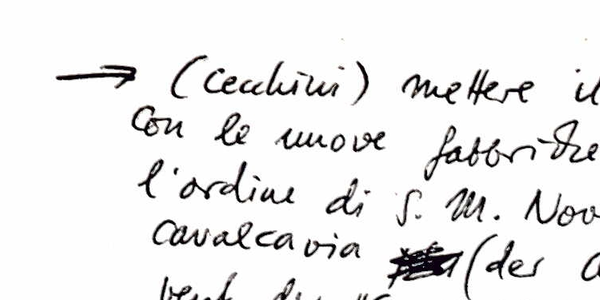 → (Cecchini) mettere il
con le nuove fabbriche
l'ordine di S. M. Nov
cavalcavia (des